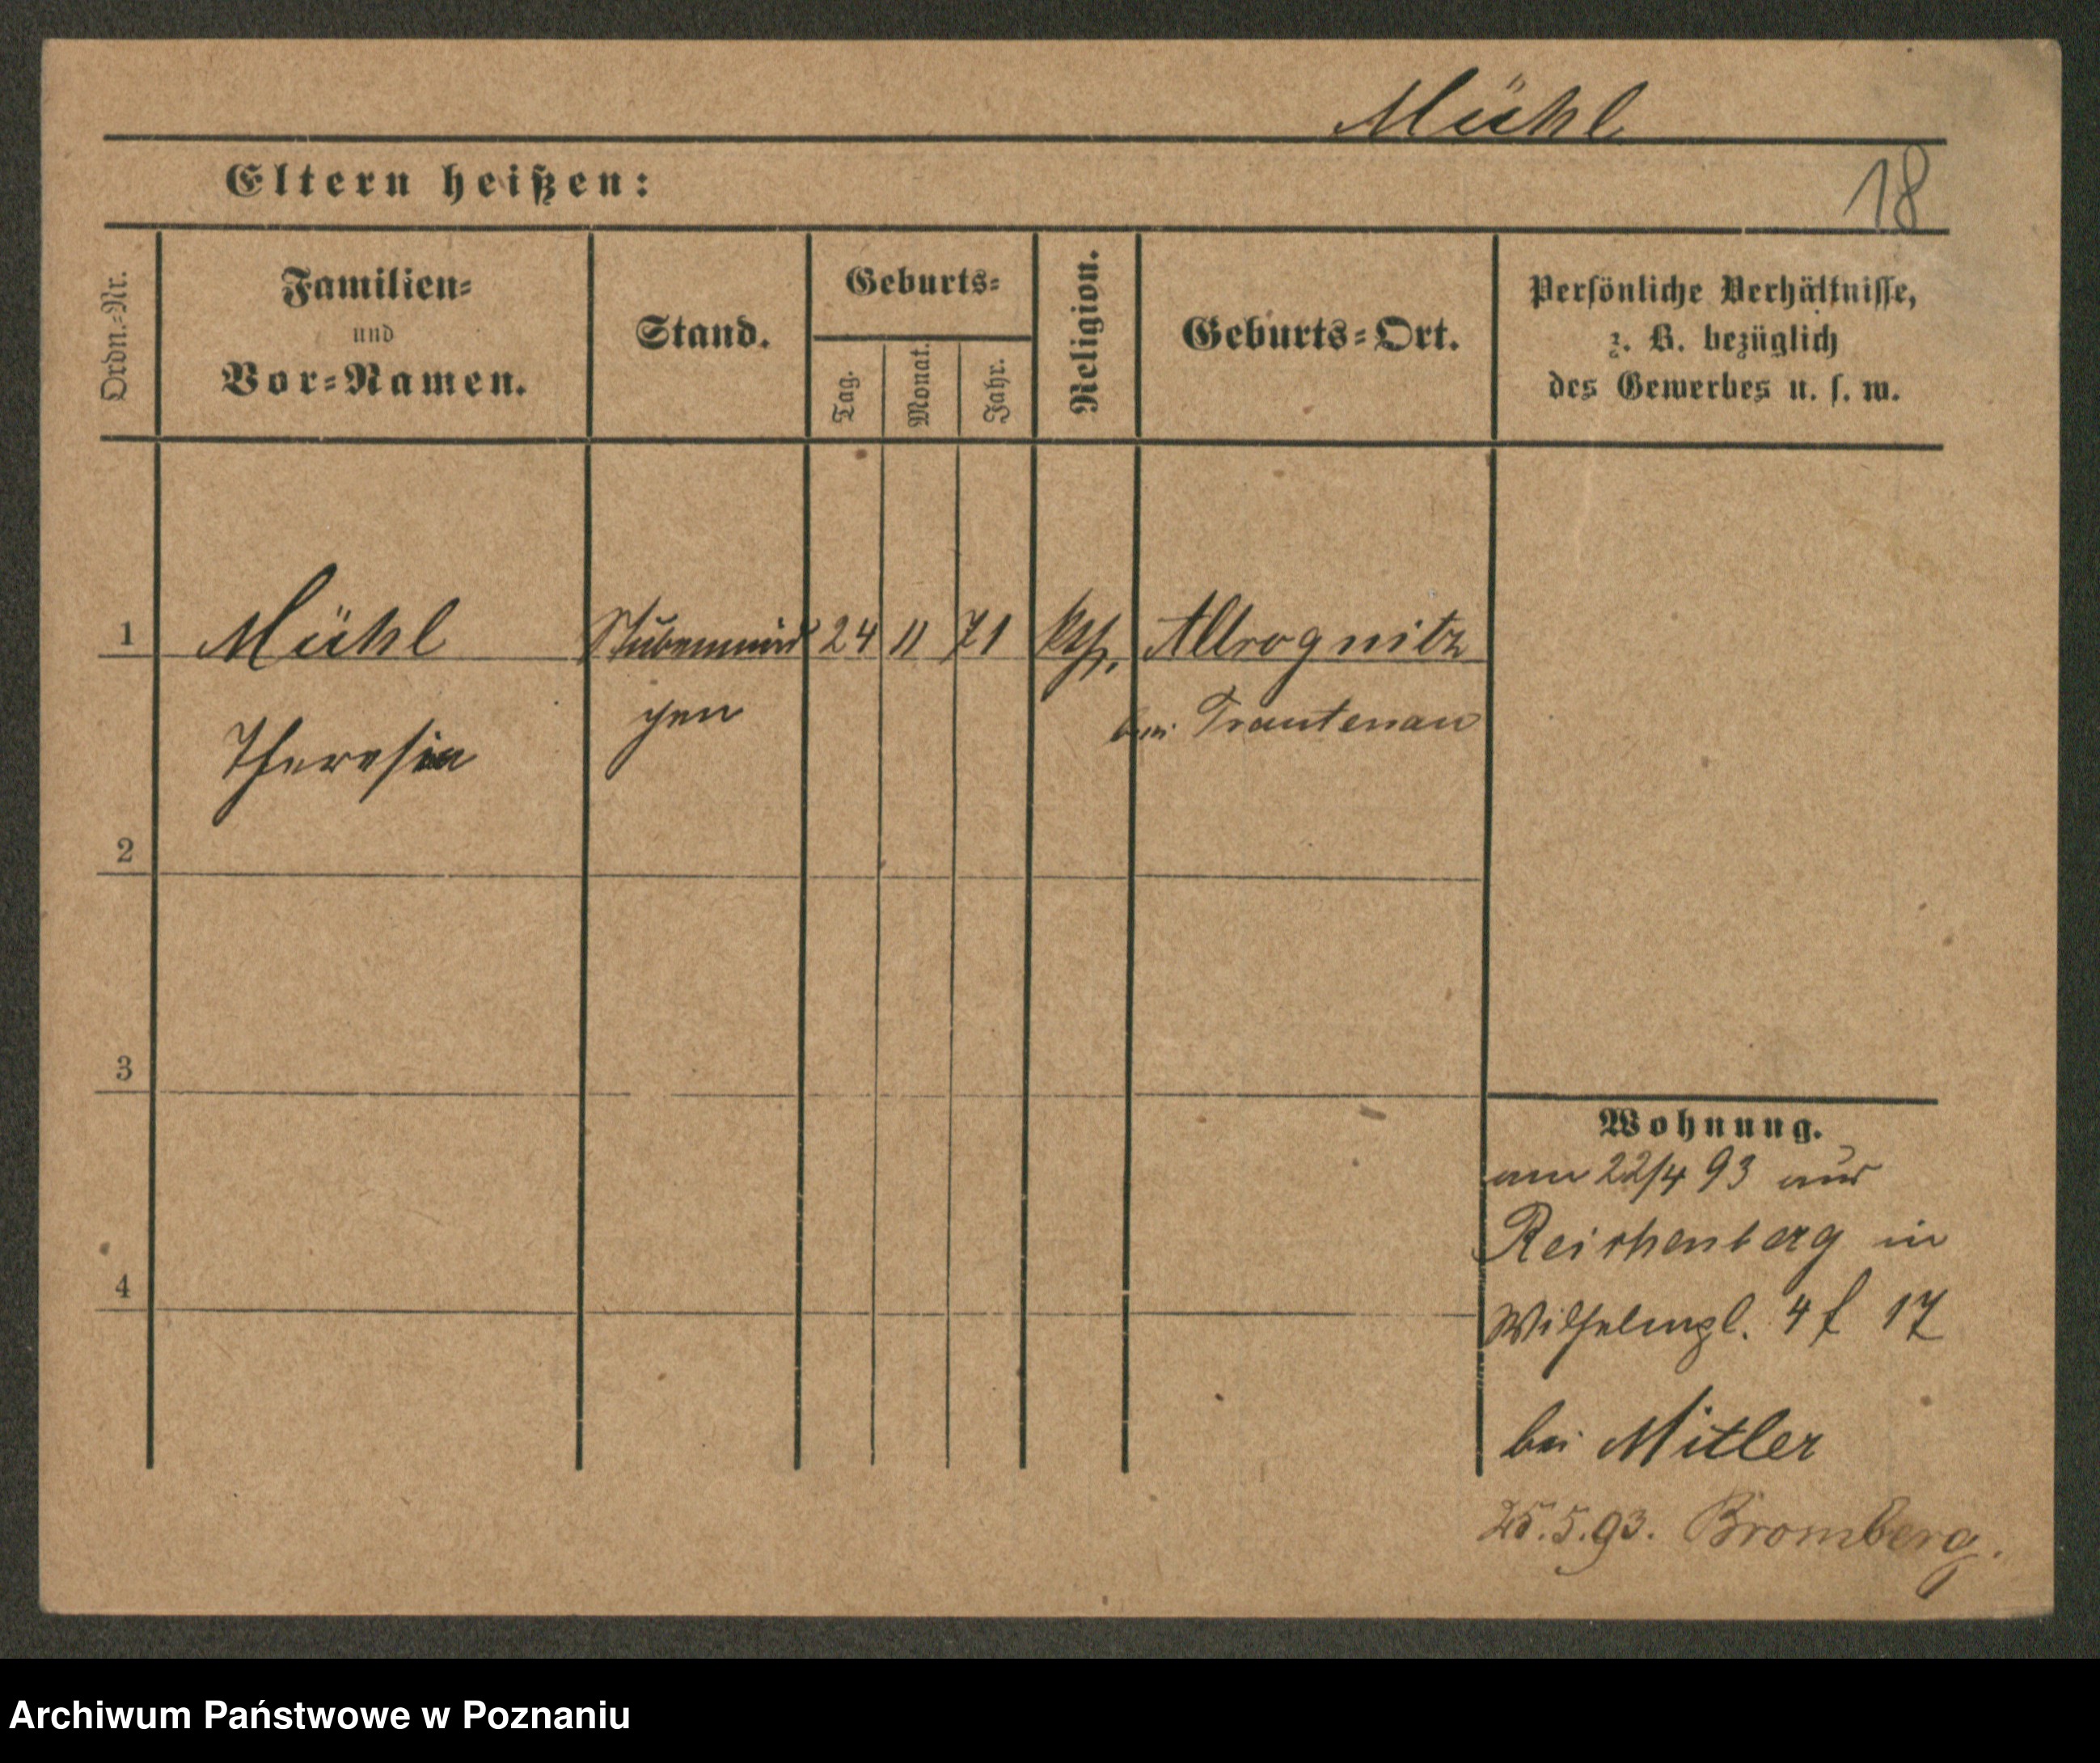 Mühl
Eltern heißen:
18
Ordn.-Nr.
Familien-
und
Vor-Namen.
Stand.
Geburts-
Tag.
Monat.
Jahr.
Religion.
Geburts-Ort.
Persönliche Verhältnisse,
z. B. bezüglich
des Gewerbes u. s. w.
1
Mühl
Stubenmäd
24
11
71
kth.
Altrognitz
gen
bei Trautenau
Theresia
2
3
4
Wohnung.
am 22/4 93 aus
Reichenberg in
Wilhelmpl. 4 f 17
bei Mitler
25.5.93. Bromberg.
Archiwum Państwowe w Poznaniu